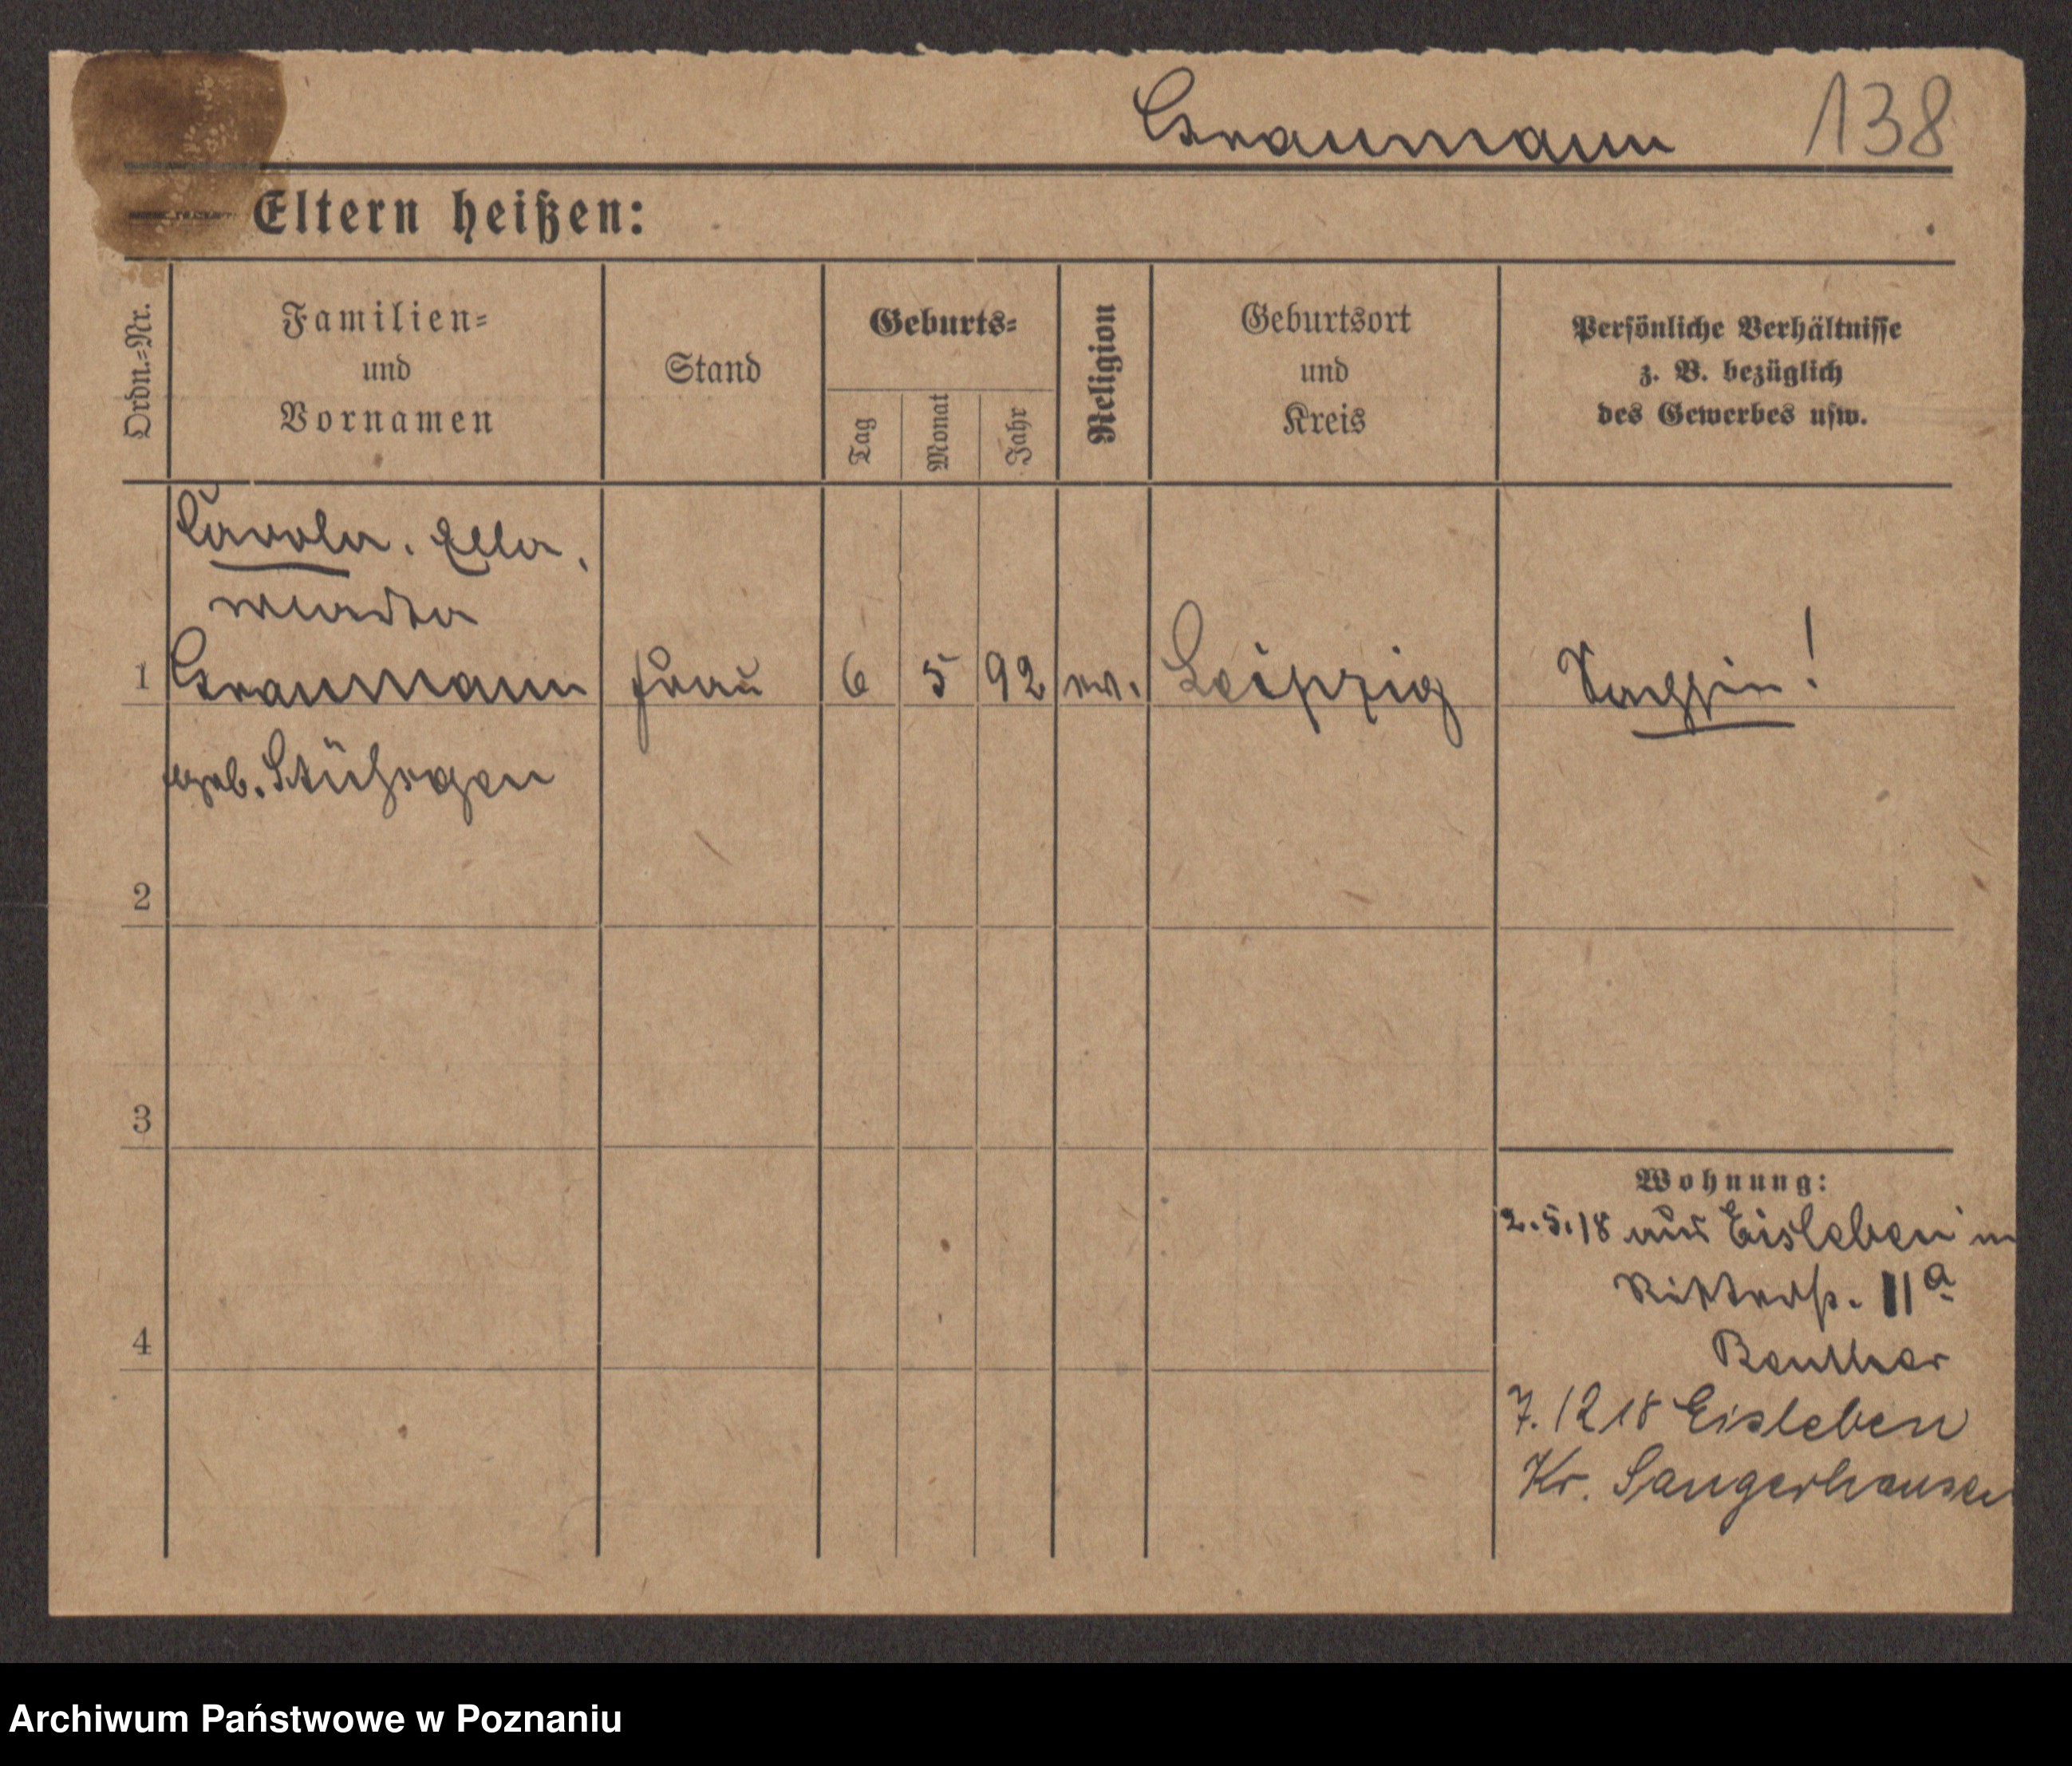 Graumann 138
Eltern heißen:
Ordn.-Nr.
Familien-
und
Vornamen
Stand
Geburts-
Tag
Monat
Jahr
Religion
Geburtsort
und
Kreis
Persönliche Verhältnisse
z. B. bezüglich
des Gewerbes usw.
Carola. Ella,
1 Graumann Frau 6 5 92 ev. Leipzig
geb.
2
3
4
Wohnung:
2.5.18 aus Eisleben in
Ritterstr. 11a
7. 12 18 Eisleben
Kr. Sangerhausen
Archiwum Państwowe w Poznaniu